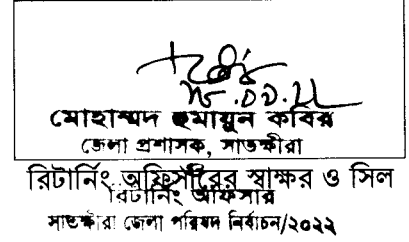 মোহাম্মদ হুমায়ুন কবির
জেলা প্রশাসক, সাতক্ষীরা
রিটার্নিং অফিসারের স্বাক্ষর ও সিল
রিটার্নিং অফিসার
সাতক্ষীরা জেলা পরিষদ নির্বাচন/২০২২